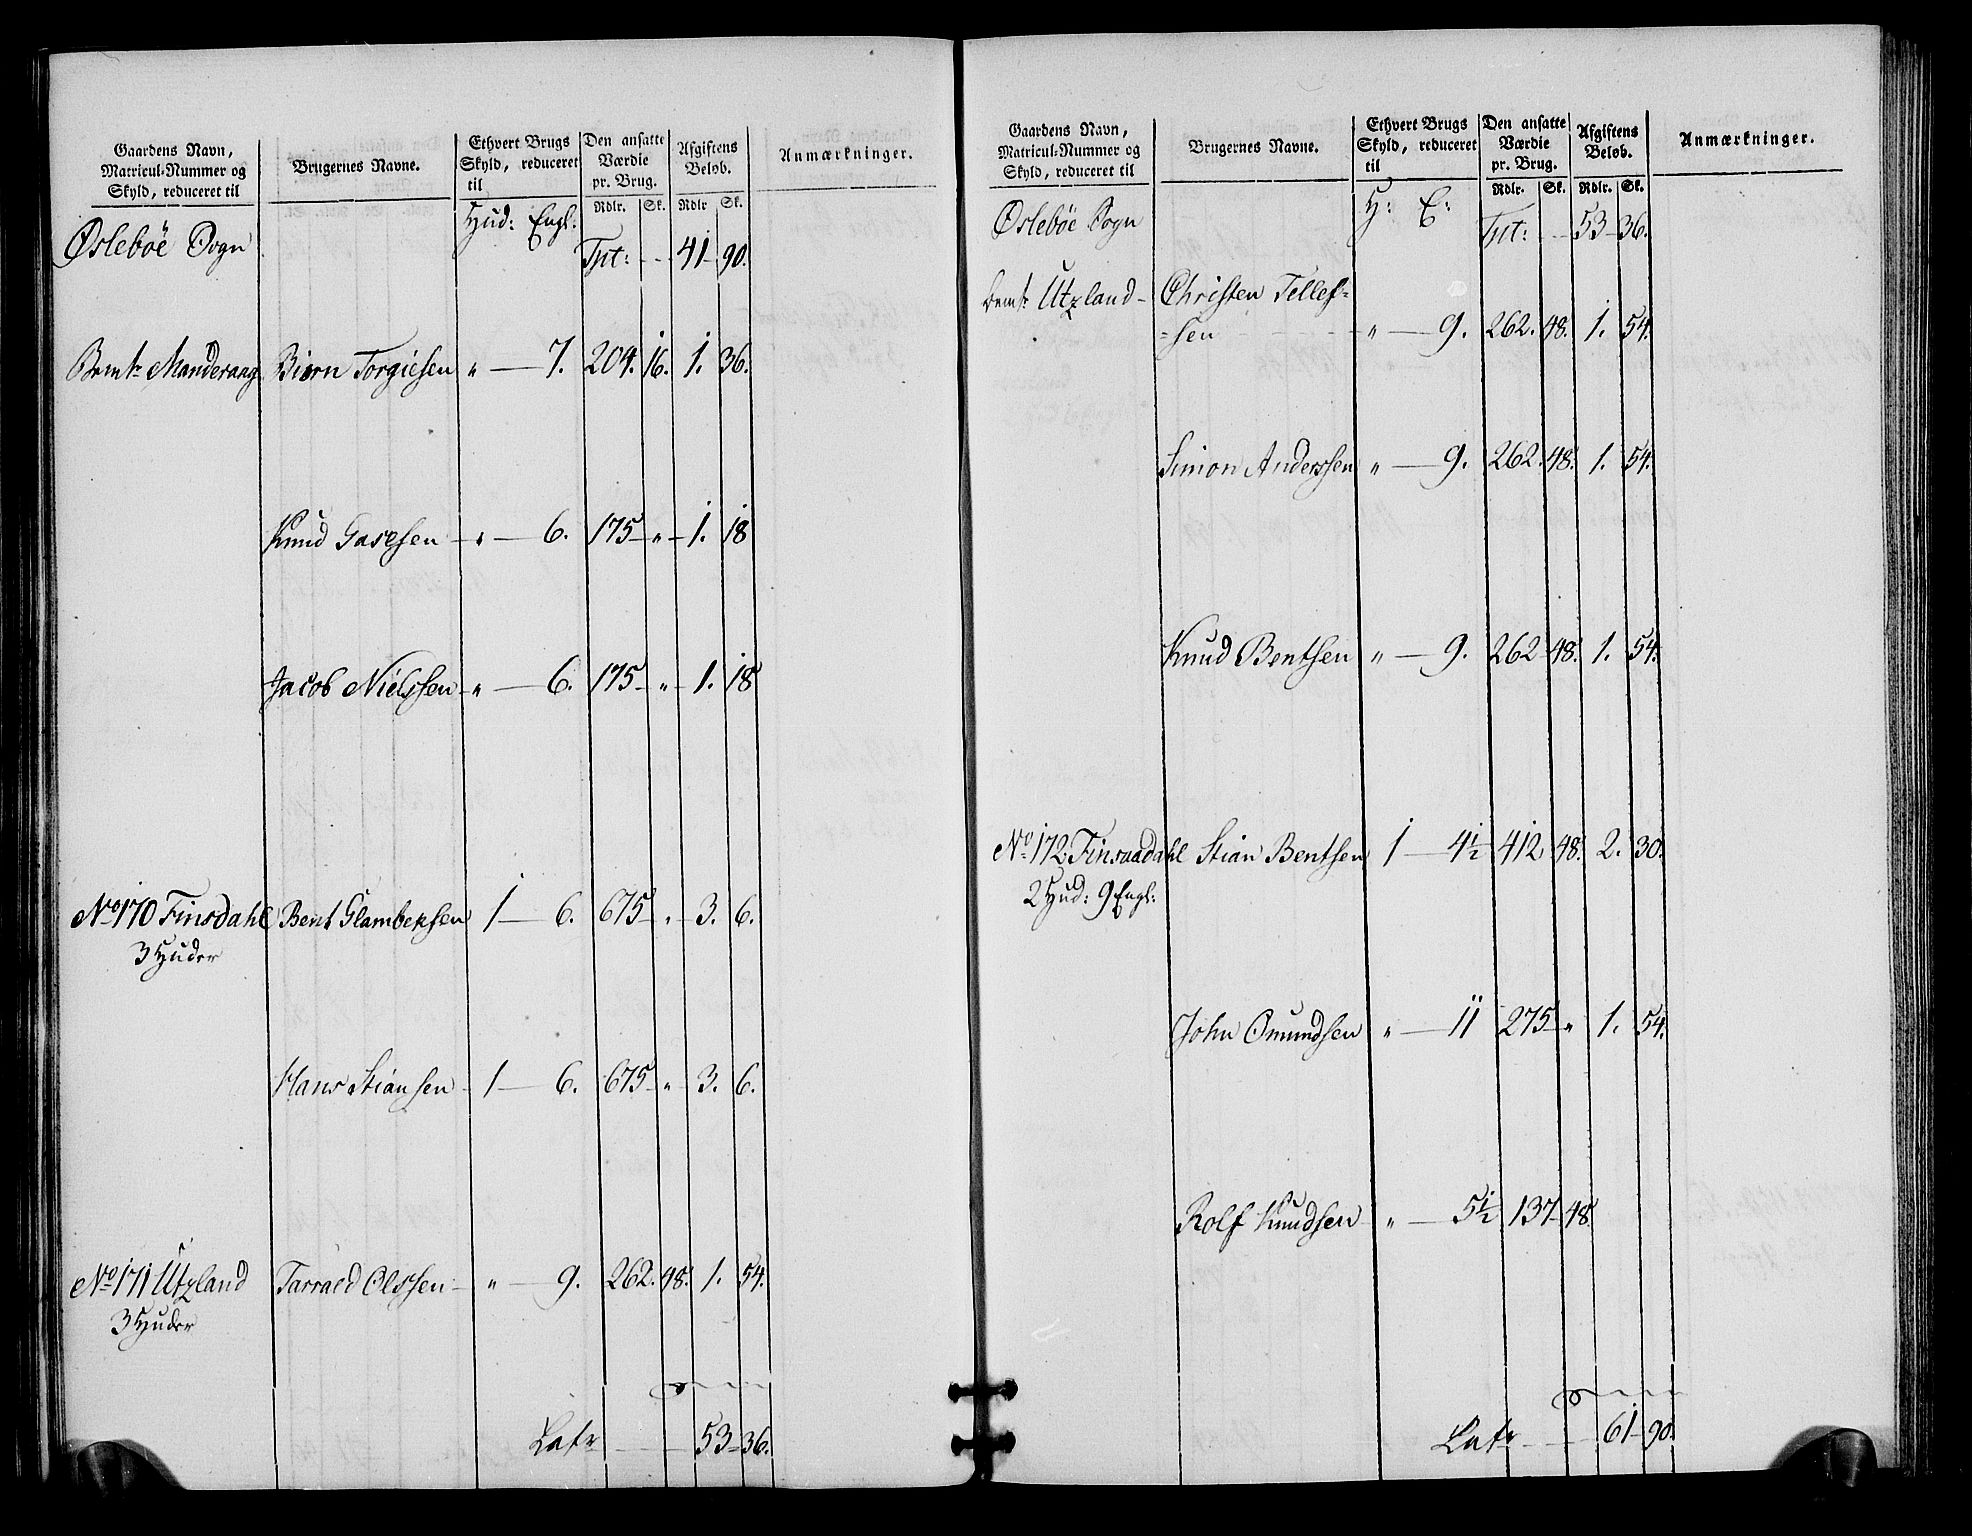 Gaardens Navn,
Matricul-Nummer og
Skyld, reduceret til
Brugernes Navne.
Ethvert Brugs
Skyld, reduceret
til
Den ansatte
Værdie
pr. Brug.
Afgiftens
Beløb.
Anmærkninger.
Rdlr. Sk. Rdlr Sk.
Øslebøe Sogn Hud: Engl:
Tpt: 41 90.
Bemte Manderang Biørn Torgiesen „ 7. 204. 16. 1. 36.
Knud Gasesen „ 6. 175 „ 1. 18
Jacob Nielssen „ 6. 175 „ 1. 18
No 170 Finsdahl Bent Glambeksen 1 6. 675 „ 3. 6.
3 Huder
Hans Stiansen 1 6. 675 „ 3. 6.
No 171 Utzland Tarrald Olssen „ 9. 262. 48. 1. 54.
3 Huder
Latr 53 36.
Gaardens Navn,
Matricul-Nummer og
Skyld, reduceret til
Brugernes Navne.
Ethvert Brugs
Skyld, reduceret
til
Den ansatte
Værdie
pr. Brug.
Afgiftens
Beløb.
Anmærkninger.
Rdlr. Sk. Rdlr. Sk.
Øslebøe Sogn H: E: Tpt: 53 36.
bemte Utzland Christen Tellef=
=sen „ 9. 262. 48. 1. 54.
Simon Anderssen „ 9. 262. 48. 1. 54.
Knud Bentsen „ 9. 262 48. 1. 54.
No 172 Finsaadahl Stian Bentsen 1 4½ 412 48. 2. 30.
2 Hud: 9 Engl:
John Omundsen „ 11 275 „ 1. 54.
Rolf Knudsen „ 5½ 137 48.
Latr 61 90.